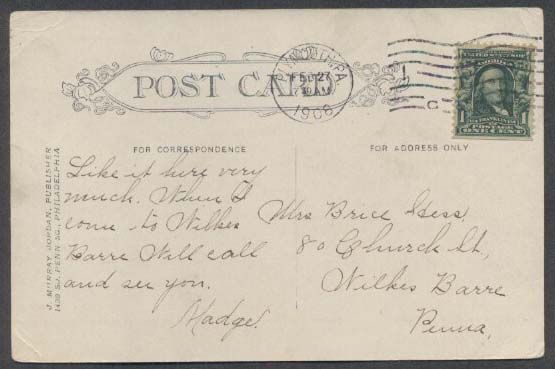 POST CARD
FEB 27
AM
1908
1 1
ONE CENT
FOR CORRESPONDENCE
FOR ADDRESS ONLY
J. MURRAY JORDAN, PUBLISHER
1438 So. PENN SQ., PHILADELPHIA
Like it here very
much. When I
come to Wilkes
Barre Will call
and see you.
Madge.
Mrs Brice Hess,
80 Church St,
Wilkes Barre
Penna,